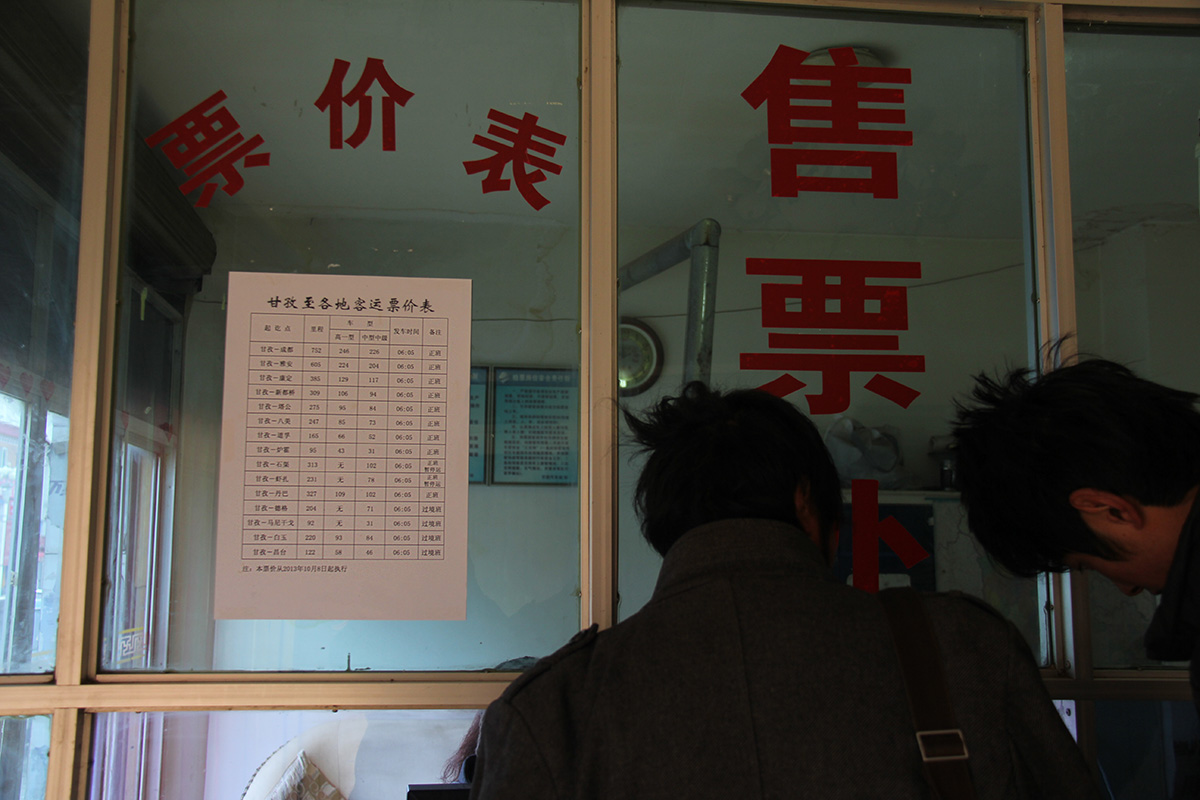 票价表
售
票
卜
甘孜至各地客运票价表
起讫点 里程 车型 发车时间 备注
高一型 中型中级
甘孜—成都 752 246 226 06:05 正班
甘孜—雅安 605 224 204 06:05 正班
甘孜—康定 385 129 117 06:05 正班
甘孜—新都桥 309 106 94 06:05 正班
甘孜—塔公 275 95 84 06:05 正班
甘孜—八美 247 85 73 06:05 正班
甘孜—道孚 165 66 52 06:05 正班
甘孜—炉霍 95 43 31 06:05 正班
甘孜—石渠 313 无 102 06:05 正班暂停运
甘孜—虾扎 231 无 78 06:05 正班暂停运
甘孜—丹巴 327 109 102 06:05 正班
甘孜—德格 204 无 71 06:05 过境班
甘孜—马尼干戈 92 无 31 06:05 过境班
甘孜—白玉 220 93 84 06:05 过境班
甘孜—昌台 122 58 46 06:05 过境班
注：本票价从2013年10月8日起执行